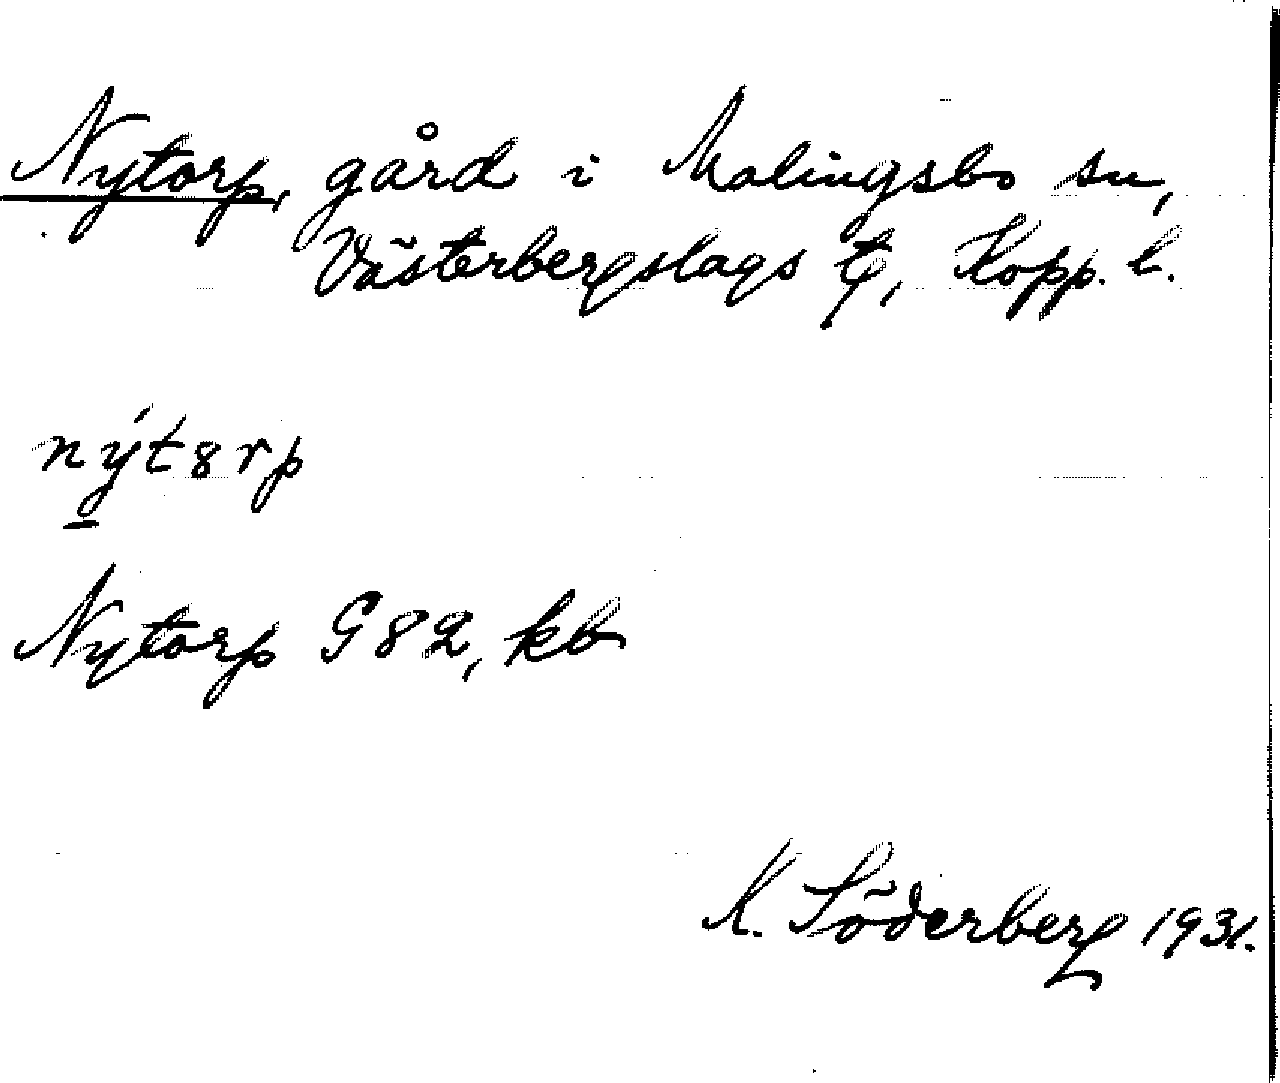 Nytorp, gård i Malingsbo sn,
Västerbergslags tg, Kopp. l.
nýt8rp
Nytorp G82, kb
K. Söderberg 1931.